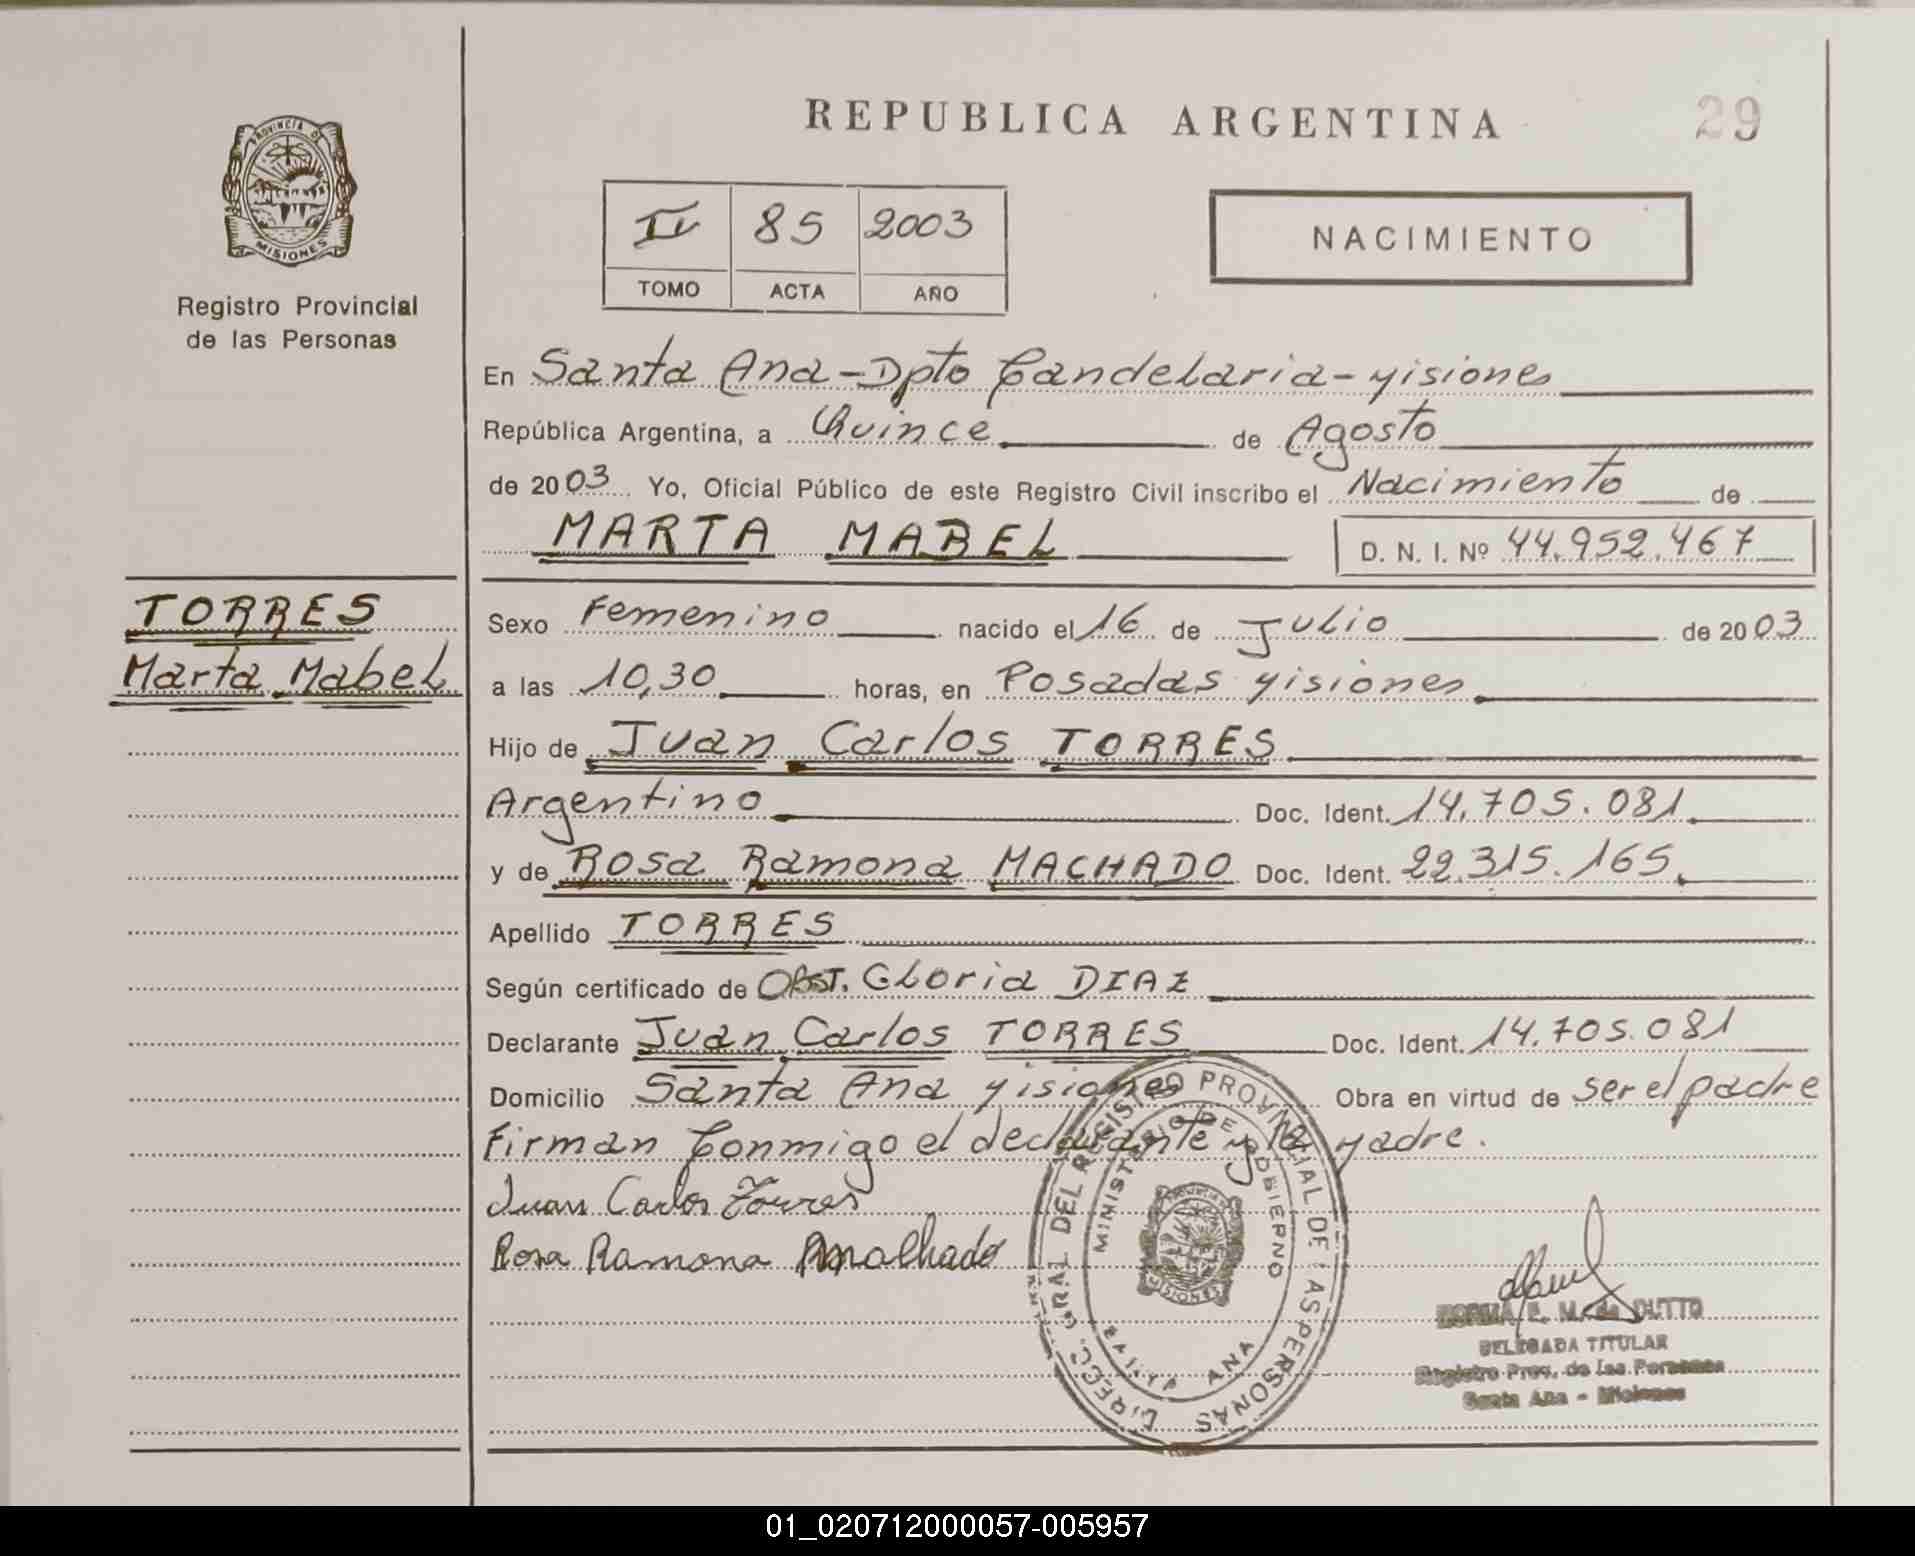 REPUBLICA ARGENTINA
29
PROVINCIA D
MISIONES
Registro Provincial
de las Personas
IV 85 2003
TOMO ACTA AÑO
NACIMIENTO
En Santa Ana - Dpto Candelaria - Misiones
República Argentina, a Quince de Agosto
de 2003 Yo, Oficial Público de este Registro Civil inscribo el Nacimiento de
MARTA MABEL D. N. I. Nº 44.952.467
TORRES
Marta Mabel
Sexo Femenino nacido el 16 de Julio de 2003
a las 10,30 horas, en Posadas Misiones
Hijo de Juan Carlos TORRES
Argentino Doc. Ident. 14.705.081
y de Rosa Ramona MACHADO Doc. Ident. 22.315.165
Apellido TORRES
Según certificado de Obst. Gloria DIAZ
Declarante Juan Carlos TORRES Doc. Ident. 14.705.081
Domicilio Santa Ana Misiones Obra en virtud de ser el padre
Firman Conmigo el declarante y la Madre.
Juan Carlos Torres
Rosa Ramona Machado
DIRECC. GRAL DEL REGISTRO PROVINCIAL DE LAS PERSONAS
MINISTERIO DE GOBIERNO
MISIONES
SANTA ANA
E. M. de DUTTO
DELEGADA TITULAR
Registro Prov. de las Personas
Santa Ana - Misiones
01_020712000057-005957